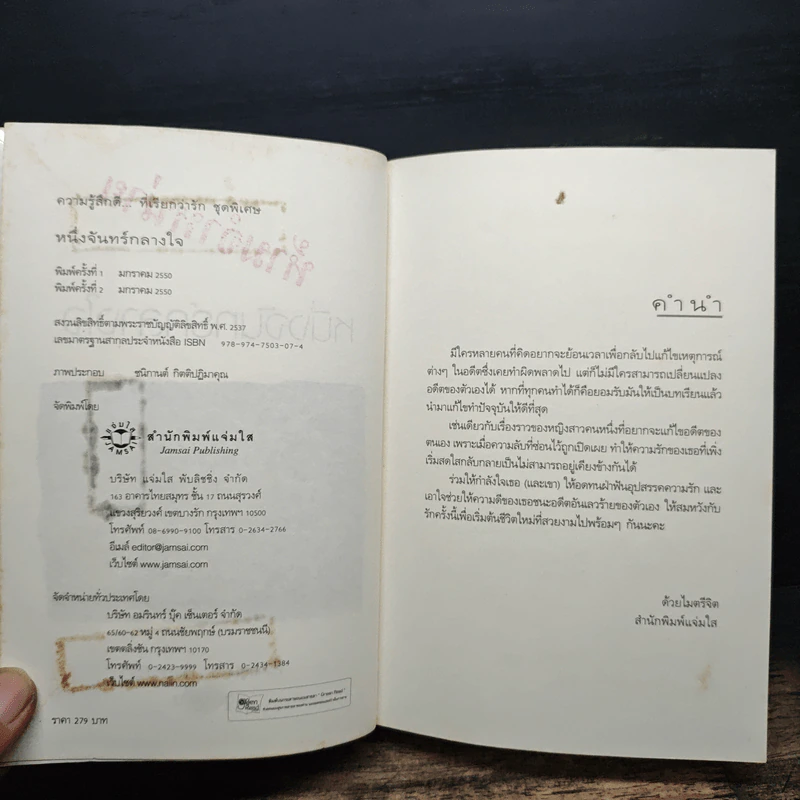 ความรู้สึกดี... ที่เรียกว่ารัก ชุดพิเศษ
หนึ่งจันทร์กลางใจ
พิมพ์ครั้งที่ 1 มกราคม 2550
พิมพ์ครั้งที่ 2 มกราคม 2550
สงวนลิขสิทธิ์ตามพระราชบัญญัติลิขสิทธิ์ พ.ศ. 2537
เลขมาตรฐานสากลประจำหนังสือ ISBN 978-974-7503-07-4
ภาพประกอบ ชนิกานต์ กิตติปฏิมาคุณ
จัดพิมพ์โดย
แจ่มใส
JAMSAI
สำนักพิมพ์แจ่มใส
Jamsai Publishing
บริษัท แจ่มใส พับลิชชิ่ง จำกัด
163 อาคารไทยสมุทร ชั้น 17 ถนนสุรวงศ์
แขวงสุริยวงศ์ เขตบางรัก กรุงเทพฯ 10500
โทรศัพท์ 08-6990-9100 โทรสาร 0-2634-2766
อีเมล์ editor@jamsai.com
เว็บไซต์ www.jamsai.com
จัดจำหน่ายทั่วประเทศโดย
บริษัท อมรินทร์ บุ๊ค เซ็นเตอร์ จำกัด
65/60-62 หมู่ 4 ถนนชัยพฤกษ์ (บรมราชชนนี)
เขตตลิ่งชัน กรุงเทพฯ 10170
โทรศัพท์ 0-2423-9999 โทรสาร 0-2434-1384
เว็บไซต์ www.naiin.com
ราคา 279 บาท
คำนำ
มีใครหลายคนที่คิดอยากจะย้อนเวลาเพื่อกลับไปแก้ไขเหตุการณ์
ต่างๆ ในอดีตซึ่งเคยทำผิดพลาดไป แต่ก็ไม่มีใครสามารถเปลี่ยนแปลง
อดีตของตัวเองได้ หากที่ทุกคนทำได้ก็คือยอมรับมันให้เป็นบทเรียนแล้ว
นำมาแก้ไขทำปัจจุบันให้ดีที่สุด
เช่นเดียวกับเรื่องราวของหญิงสาวคนหนึ่งที่อยากจะแก้ไขอดีตของ
ตนเอง เพราะเมื่อความลับที่ซ่อนไว้ถูกเปิดเผย ทำให้ความรักของเธอที่เพิ่ง
เริ่มสดใสกลับกลายเป็นไม่สามารถอยู่เคียงข้างกันได้
ร่วมให้กำลังใจเธอ (และเขา) ให้อดทนฝ่าฟันอุปสรรคความรัก และ
เอาใจช่วยให้ความดีของเธอชนะอดีตอันเลวร้ายของตัวเอง ให้สมหวังกับ
รักครั้งนี้เพื่อเริ่มต้นชีวิตใหม่ที่สวยงามไปพร้อมๆ กันนะคะ
ด้วยไมตรีจิต
สำนักพิมพ์แจ่มใส